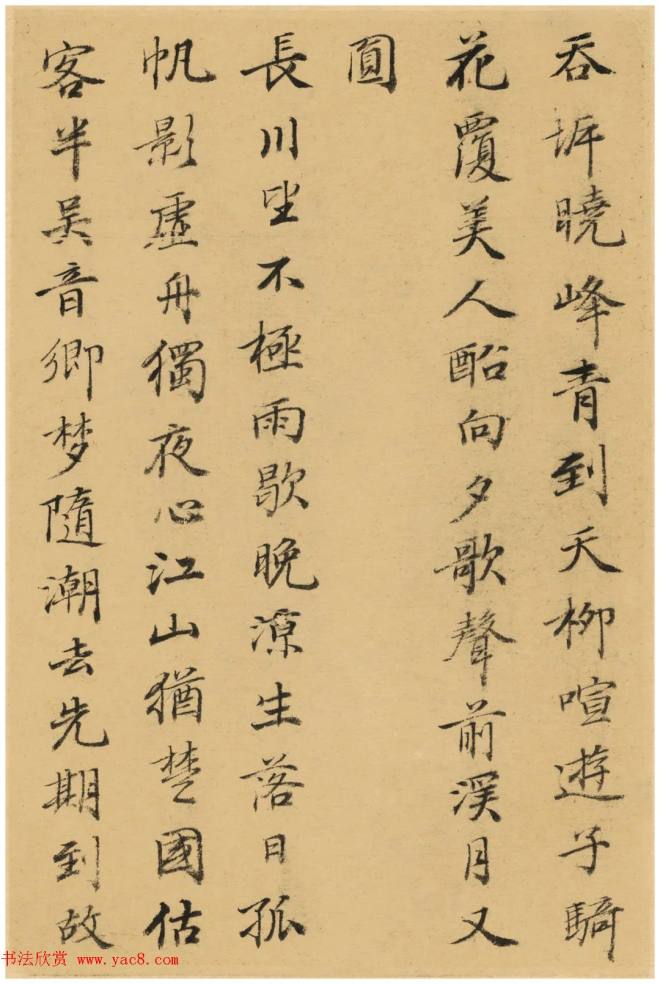 吞坼曉峰青到天柳喧遊子騎
花覆美人船向夕歌聲前溪月又
圓
長川望不極雨歇晚涼生落日孤
帆影虛舟獨夜心江山猶楚國估
客半吳音鄉夢隨潮去先期到故
书法欣赏 www.yac8.com